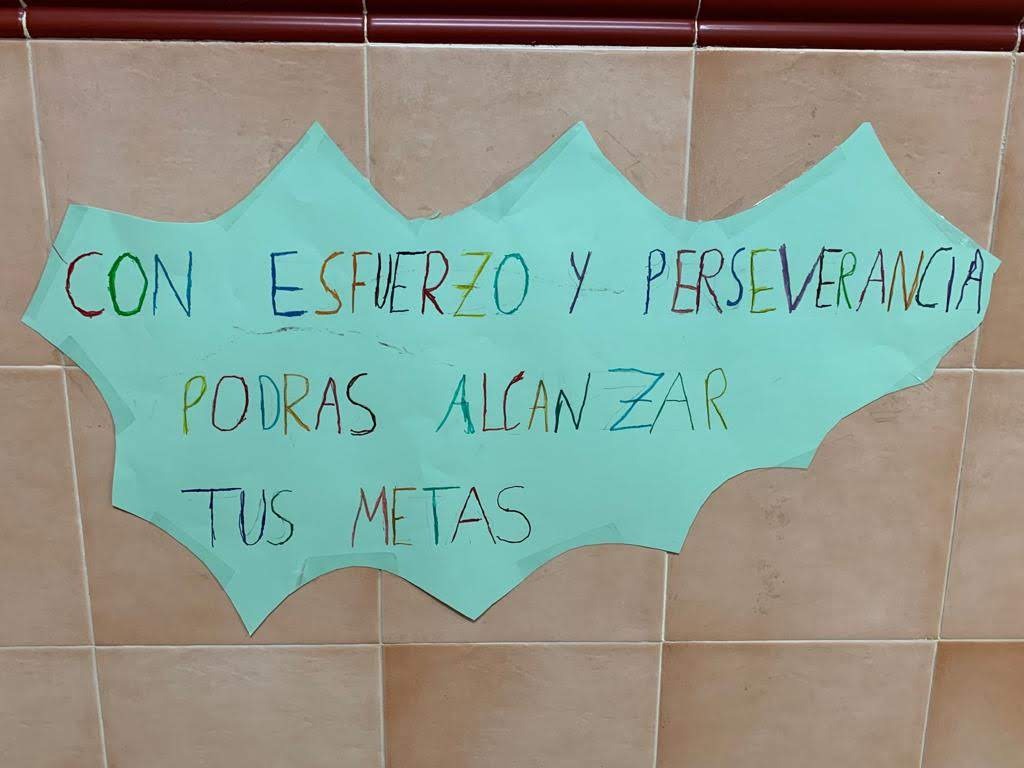 CON ESFUERZO Y PERSEVERANCIA
PODRAS ALCANZAR
TUS METAS